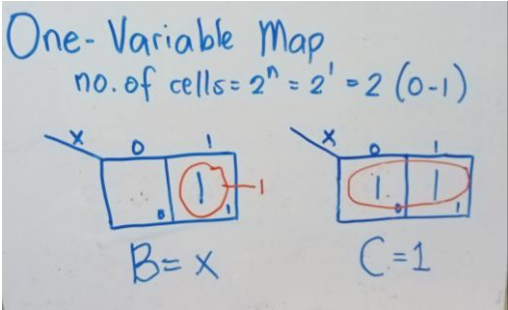 One-Variable Map
no. of cells = 2^n = 2^1 = 2 (0-1)
x 0 1
1 1
0 1
B = x
x 0 1
1 1
0 1
C = 1